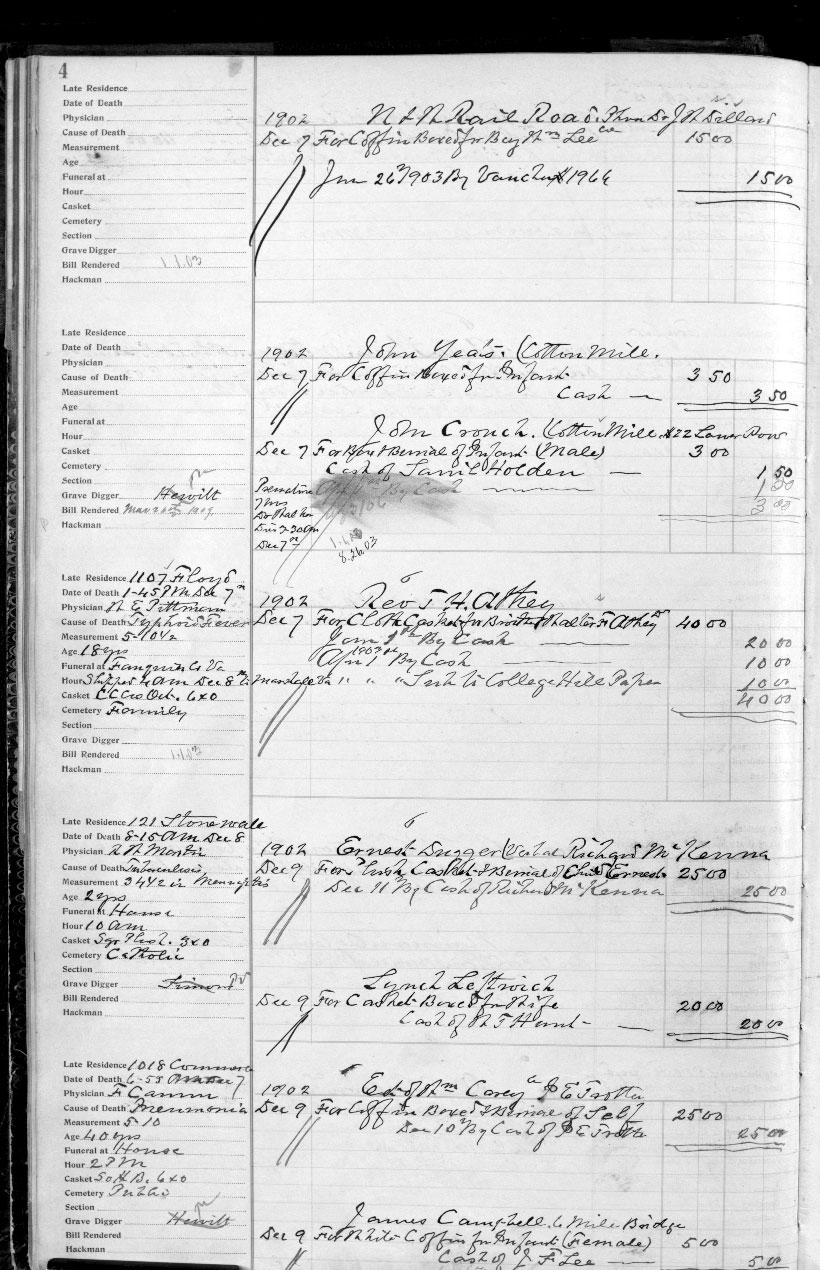 4
Late Residence
Date of Death
Physician
Cause of Death
Measurement
Age
Funeral at
Hour
Casket
Cemetery
Section
Grave Digger
Bill Rendered 1.1.03
Hackman
1902 N & W Rail Road. Thro Dr J W Dillard
Dec 7 For Coffin Boxed for Boy Wm Lee 15 00
Jan 26th 1903 By Voucher # 1964 15 00
Late Residence
Date of Death
Physician
Cause of Death
Measurement
Age
Funeral at
Hour
Casket
Cemetery
Section
Grave Digger Hewitt
Bill Rendered
Hackman
1902 John Yeats. (Cotton Mill.
Dec 7 For Coffin Boxed for Infant 3 50
Cash — 3 50
John Crouch. (Cotton Mill #22 Lower Row
Dec 7 For Box & Burial of Infant (Male) 3 00
Cash of Saml Holden — 1 50
Premature By Cash 1 50
7 mos 3 00
Dec 7th
8.26.03
Late Residence 1107 Floyd
Date of Death 1-45 PM Dec 7th
Physician W E Pittman
Cause of Death Typhoid Fever
Measurement 5-10 1/2
Age 18 yrs
Funeral at Fauquier Co Va
Hour Shipped AM Dec 8th to Marshall Va
Casket CC Co Oct. 6x0
Cemetery Family
Section
Grave Digger
Bill Rendered 1.1.03
Hackman
1902 Rev T. H. Athey
Dec 7 For Cloth Casket for Brother F Athey 40 00
Jany 1st By Cash 20 00
Apr 1 1903 By Cash 10 00
" " " Sub to College Hill Paper 10 00
40 00
Late Residence 121 Stonewall
Date of Death 8-15 AM Dec 8
Physician Martin
Cause of Death Tuberculosis
Measurement 34 42 in Meningitis
Age 2 yrs
Funeral at House
Hour 10 am
Casket Sqr Plush. 3x0
Cemetery Catholic
Section
Grave Digger
Bill Rendered
Hackman
1902 Ernest Dugger Richard McKenna
Dec 9 For Plush Casket & Burial of Child Ernest 25 00
Dec 11th By Cash of Richard McKenna 25 00
Lynch Leftwich
Dec 9 For Casket Boxed for Wife 20 00
Cash of W T Hunt — 20 00
Late Residence 1018 Commerce
Date of Death 6-55 Dec 7
Physician F Camm
Cause of Death Pneumonia
Measurement 5-10
Age 40 yrs
Funeral at House
Hour 2 PM
Casket So H B. 6x0
Cemetery Public
Section
Grave Digger Hewitt
Bill Rendered
Hackman
1902 Est of Wm Carey E Trotter
Dec 9 For Coffin Boxed & Burial of Self 25 00
Dec 10th By Cash of E Trotter 25 00
James Campbell. 6 Mile Bridge
Dec 9 For White Coffin for Infant (Female) 5 00
Cash of J F Lee — 5 00